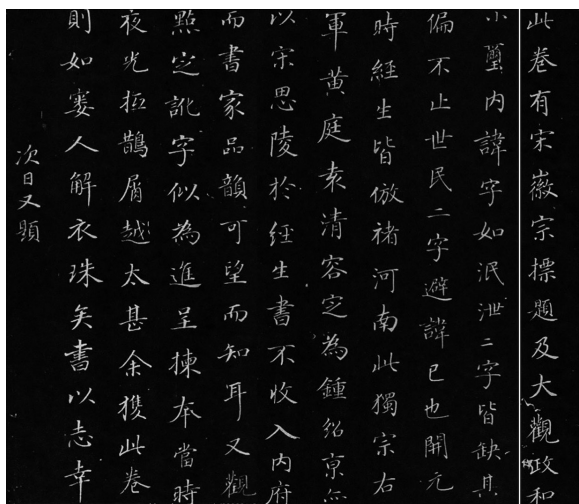 此卷有宋徽宗摽題及大觀政和
小璽内諱字如泯泄二字皆缺其
偏不止世民二字避諱已也開元
時經生皆倣褚河南此獨宗右
軍黄庭袁清容定為鍾紹京
以宋思陵於經生書不收入内府
而書家品韻可望而知耳又觀
點定訛字似為進呈揀本當時
夜光抵鵲屑越太甚余獲此卷
則如窶人解衣珠矣書以志幸
次日又題